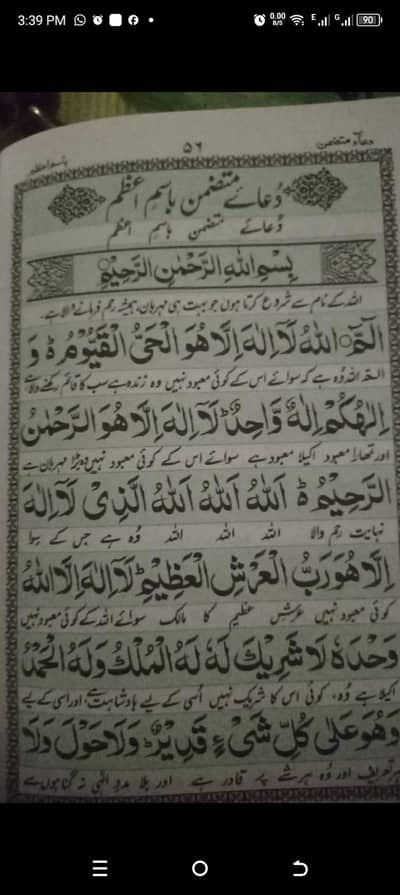 3:39 PM
0.00
B/S
E
G
90
۵۶
دعاء متضمن
باسم اعظم
دُعائے متضمن باسمِ اعظم
دُعائے متضمن باسمِ اعظم
بِسْمِ اللهِ الرَّحْمٰنِ الرَّحِيْمِ
اللہ کے نام سے شروع کرتا ہوں جو بہت ہی مہربان ہمیشہ رحم فرمانے والا ہے۔
الٓمّٓ اللهُ لَآ اِلٰهَ اِلَّا هُوَ الْحَيُّ الْقَيُّوْمُ ط وَ
اللہ وُہ ہے کہ سوائے اس کے کوئی معبود نہیں وہ زندہ ہے سب کا قائم رکھنے والا ہے
اِلٰهُكُمْ اِلٰهٌ وَّاحِدٌ لَآ اِلٰهَ اِلَّا هُوَ الرَّحْمٰنُ
اور تمھارا معبود اکیلا معبود ہے سوائے اس کے کوئی معبود نہیں وہ بڑا مہربان ہے
الرَّحِيْمُ ط اَللهُ اَللهُ اَللهُ الَّذِىْ لَآ اِلٰهَ
نہایت رحم والا اللہ اللہ اللہ وُہ ہے جس کے سوا
اِلَّا هُوَ رَبُّ الْعَرْشِ الْعَظِيْمِ ط لَآ اِلٰهَ اِلَّا اللهُ
کوئی معبود نہیں عرشِ عظیم کا مالک سوائے اللہ کے کوئی معبود نہیں
وَحْدَهٗ لَا شَرِيْكَ لَهٗ لَهُ الْمُلْكُ وَلَهُ الْحَمْدُ
اکیلا ہے وُہ، کوئی اس کا شریک نہیں اُسی کے لیے بادشاہت ہے اور اسی کے لیے
وَهُوَ عَلٰى كُلِّ شَىْءٍ قَدِيْرٌ ط وَلَا حَوْلَ وَلَا
ہر تعریف اور وُہ ہر شے پر قادر ہے اور بلا مددِ الٰہی نہ گناہوں سے